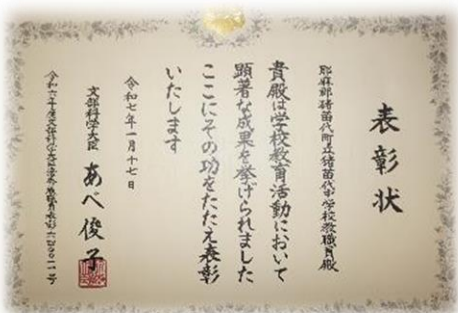 表彰状
耶麻郡猪苗代町立猪苗代中学校教職員殿
貴殿は学校教育活動において
顕著な成果を挙げられました
ここにその功をたたえ表彰
いたします
令和七年一月十七日
文部科学大臣 あべ俊子